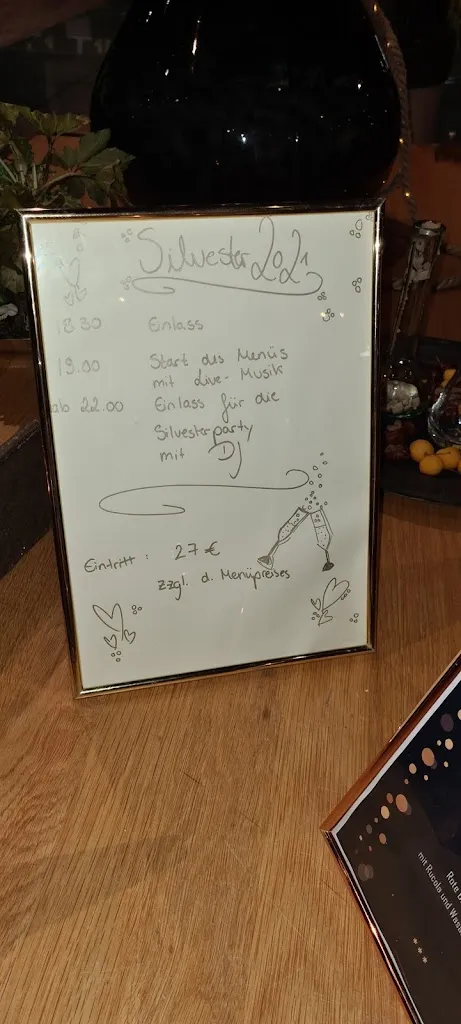 Silvester 2021
18.30 Einlass
19.00 Start des Menüs
mit Live-Musik
ab 22.00 Einlass für die
Silvesterparty
mit DJ
Eintritt: 27€
zzgl. d. Menüpreises
Rote
mit Rucola und
***